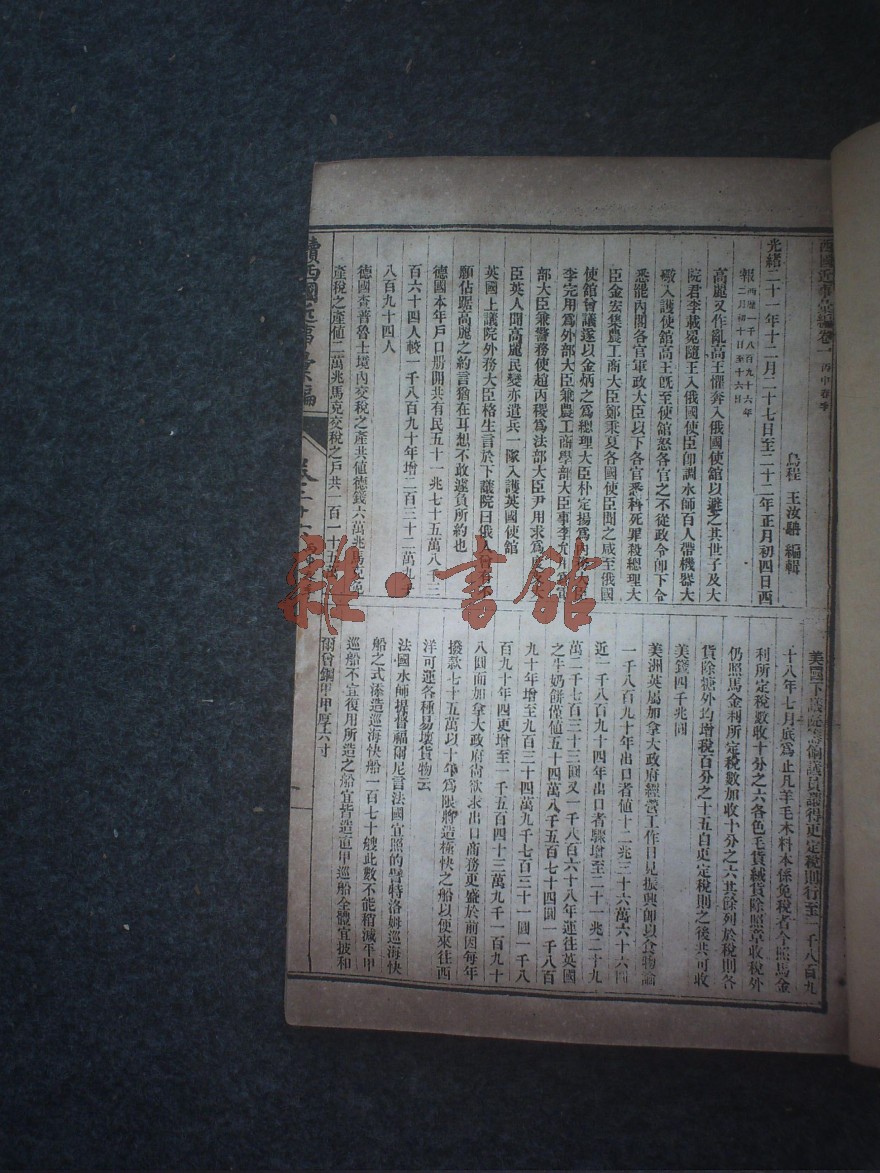 西國近事彙編卷一 丙申春季
烏程 王汝駷 編輯
光緒二十一年十二月二十七日至二十二年正月初四日西
報 西歷一千八百九十六年二月初十日至十六日
高麗又作亂高王懼奔入俄國使館以避之其世子及大
院君李載冕隨王入俄國使臣卽調水師百人帶機器大
礮入護使館高王旣至使館怒各官之不從政令卽下令
悉罷內閣各官軍政大臣以下各官悉科死罪殺總理大
臣金宏集農工商大臣鄭秉夏各國使臣聞之咸至俄國
使館會議遂以金炳之爲總理大臣朴定揚爲內務大臣
李完用爲外部大臣兼農工商學部大臣事李允用爲軍
部大臣兼警務使趙丙稷爲法部大臣尹用求爲度支大
臣英人聞高麗民變亦遣兵一隊入護英國使館
英國上議院外務大臣格生言於下議院曰俄人曾有不
願佔踞高麗之約言猶在耳想不敢違負所約也
德國本年戶口册開共有民五十一兆七十五萬八千三
百六十四人較一千八百九十年增二百三十二萬九千
八百九十四人
德國查普魯士境內交稅之產共値德錢六萬兆馬克起
產稅之產値二萬兆馬克交稅之戶共一百一十五萬
美國下議院紳議員議得更定稅則行至一千八百九
十八年七月底爲止凡羊毛木料本係免稅者今照馬金
利所定稅數收十分之六各色毛貨絨貨除照章收稅外
仍照馬金利所定稅數加收十分之六其餘列於稅則各
貨除糖外均增稅百分之十五自更定稅則之後共可收
美錢四千兆圓
美洲英屬加拿大政府經營工作日見振興卽以食物論
一千八百九十年出口者値十二兆三十六萬六十六圓
近一千八百九十四年出口者驟增至二十一兆二十九
萬二千七百三十三圓又一千八百六十八年運往英國
之牛奶餅僅値五十四萬八千五百七十四圓一千八百
九十年增至九百三十四萬九千七百三十一圓一千八
百九十年四更增至一千五百四十三萬九千一百九十
八圓而加拿大政府尙欲求出口商務更盛於前因每年
撥款七十五萬以十年爲限將造極快之船以便來往西
洋可運各種易壞貨物云
法國水師提督福爾尼言法國宜照的譬特洛姆巡海快
船之式添造巡海快船一百七十艘此數不能稍減平甲
巡船不宜復用所造之船宜皆造直甲巡船全體宜披和
爾曾鋼甲甲厚六寸
續西國近事彙編
卷二十
一
雜·書館